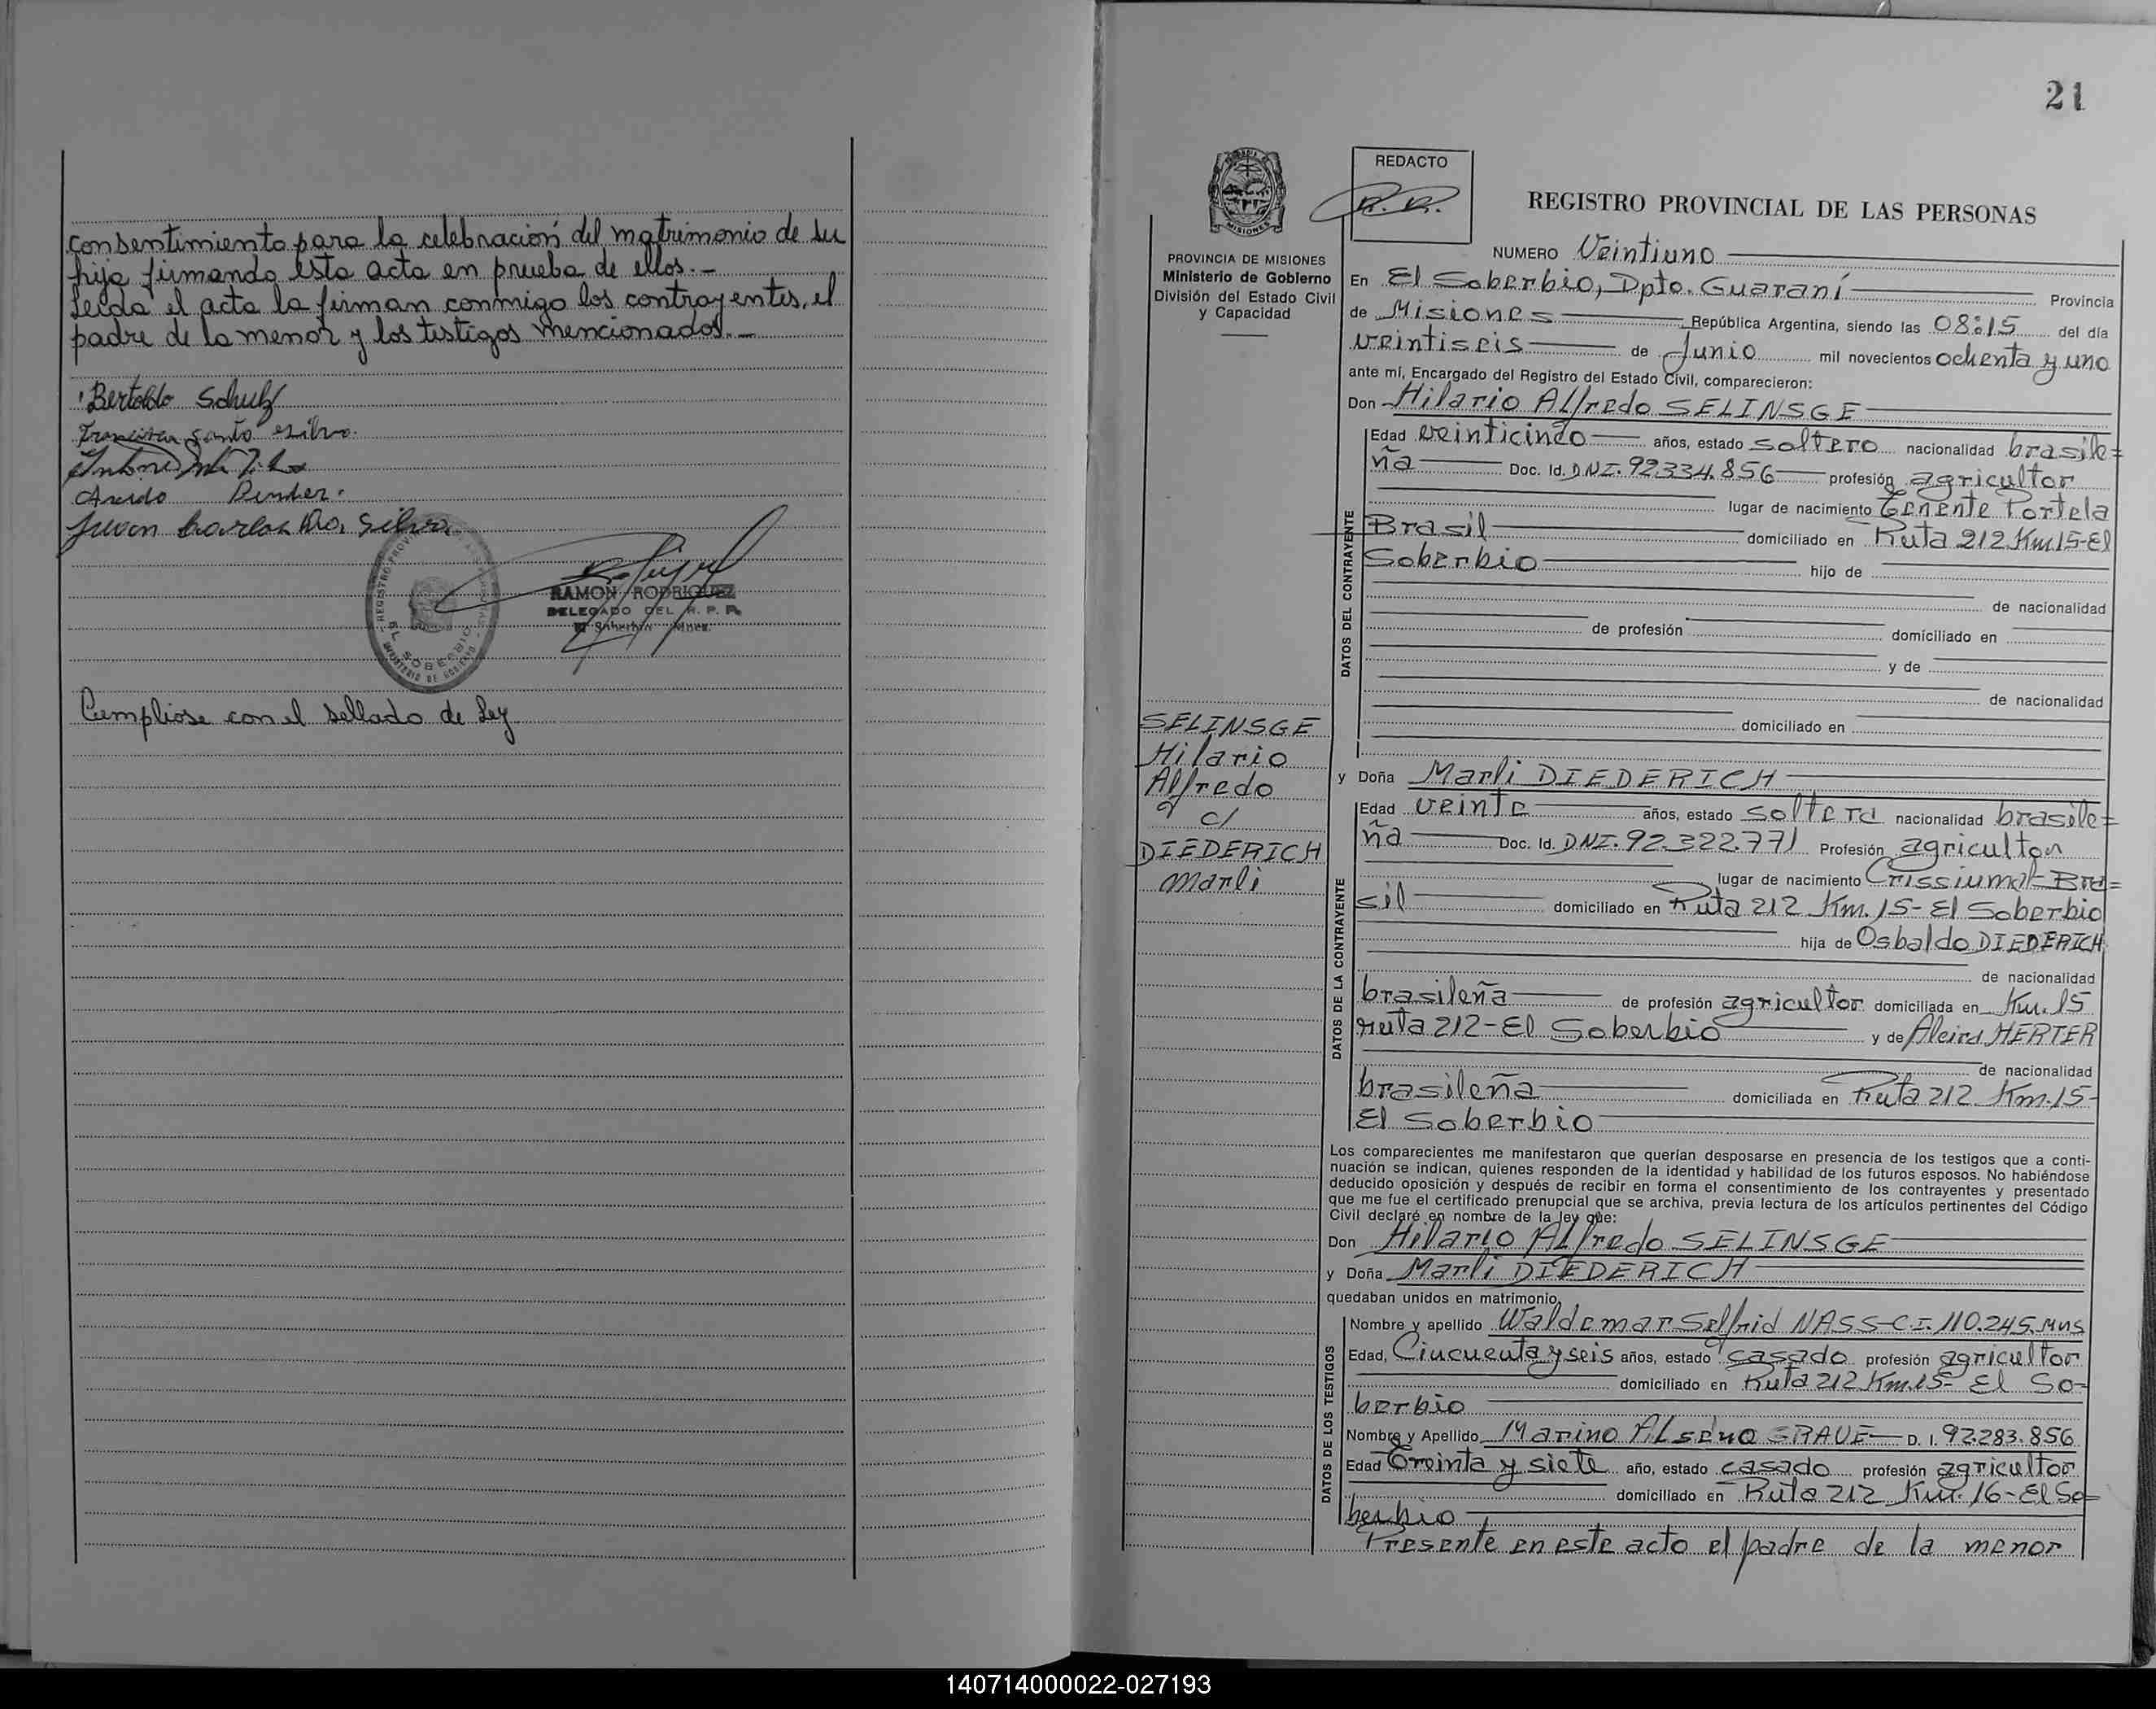 consentimiento para la celebración del matrimonio de su
hija firmando esta acta en prueba de ellos.-
Leida el acta la firman conmigo los contrayentes, el
padre de la menor y los testigos mencionados.-
Bertoldo Schulz
Juan Carlos Da Silva
RAMON RODRIGUEZ
DELEGADO DEL R. P. P.
El Soberbio Mnes.
Cumpliose con el sellado de Ley
21
REDACTO
R.R.
REGISTRO PROVINCIAL DE LAS PERSONAS
PROVINCIA DE MISIONES
Ministerio de Gobierno
División del Estado Civil
y Capacidad
NUMERO Veintiuno
En El Soberbio, Dpto. Guaraní Provincia
de Misiones República Argentina, siendo las 08:15 del día
veintiseis de Junio mil novecientos ochenta y uno
ante mí, Encargado del Registro del Estado Civil, comparecieron:
Don Hilario Alfredo SELINSGE
DATOS DEL CONTRAYENTE
Edad veinticinco años, estado soltero nacionalidad brasile=
ña Doc. Id. DNI. 92.334.856 profesión agricultor
lugar de nacimiento Tenente Portela
Brasil domiciliado en Ruta 212 Km 15-El
Soberbio hijo de
de nacionalidad
de profesión domiciliado en
y de
de nacionalidad
domiciliado en
SELINSGE
Hilario
Alfredo
c/
DIEDERICH
Marli
y Doña Marli DIEDERICH
DATOS DE LA CONTRAYENTE
Edad veinte años, estado soltera nacionalidad brasile=
ña Doc. Id. DNI. 92.322.771 Profesión agricultor
lugar de nacimiento Crissiumal-Bra=
sil domiciliado en Ruta 212 Km. 15- El Soberbio
hija de Osbaldo DIEDERICH
de nacionalidad
brasileña de profesión agricultor domiciliada en Km. 15
ruta 212-El Soberbio y de Alcira HERTER
de nacionalidad
brasileña domiciliada en Ruta 212 Km. 15-
El Soberbio
Los comparecientes me manifestaron que querían desposarse en presencia de los testigos que a conti-
nuación se indican, quienes responden de la identidad y habilidad de los futuros esposos. No habiéndose
deducido oposición y después de recibir en forma el consentimiento de los contrayentes y presentado
que me fue el certificado prenupcial que se archiva, previa lectura de los artículos pertinentes del Código
Civil declaré en nombre de la ley que:
Don Hilario Alfredo SELINSGE
y Doña Marli DIEDERICH
quedaban unidos en matrimonio.
DATOS DE LOS TESTIGOS
Nombre y apellido Waldemar Selfrid NASS-C.I. 110.245 Mns
Edad, Cincuenta y seis años, estado casado profesión agricultor
domiciliado en Ruta 212 Km.15- El So-
berbio
Nombre y Apellido Marino GRAUE D. I. 92.283.856
Edad Treinta y siete año, estado casado profesión agricultor
domiciliado en Ruta 212 Km. 16-El So=
berbio
Presente en este acto el padre de la menor
140714000022-027193